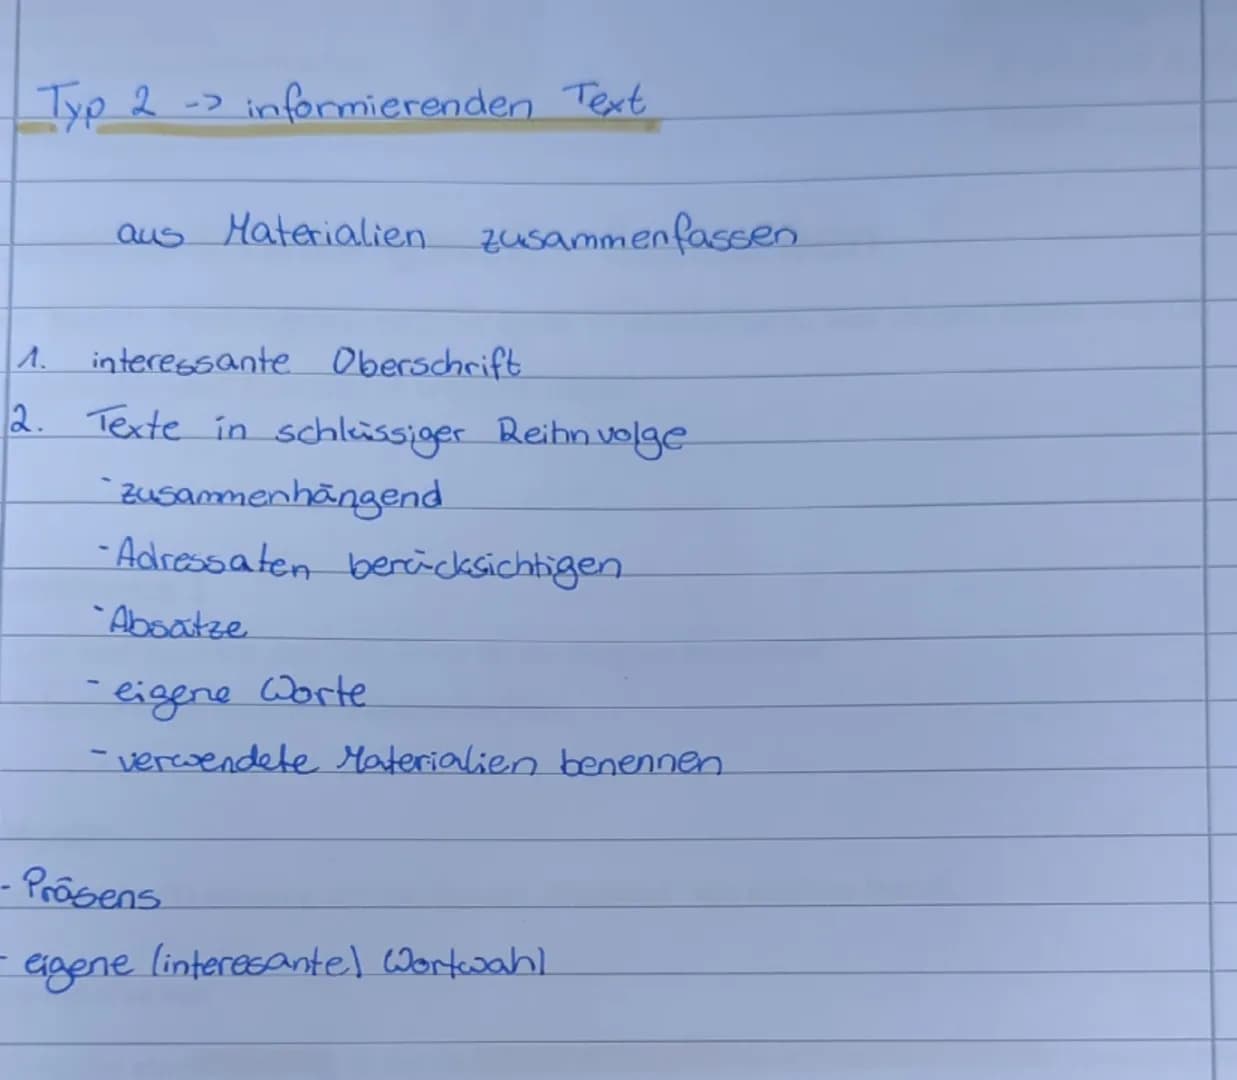 Typ 2 -> informierenden Text
aus Materialien zusammenfassen
1. interessante Überschrift
2. Texte in schlüssiger Reihnvolge
- zusammenhängend
- Adressaten berücksichtigen
- Absätze
- eigene Worte
- verwendete Materialien benennen
- Präsens
- eigene (interesante) Wortwahl